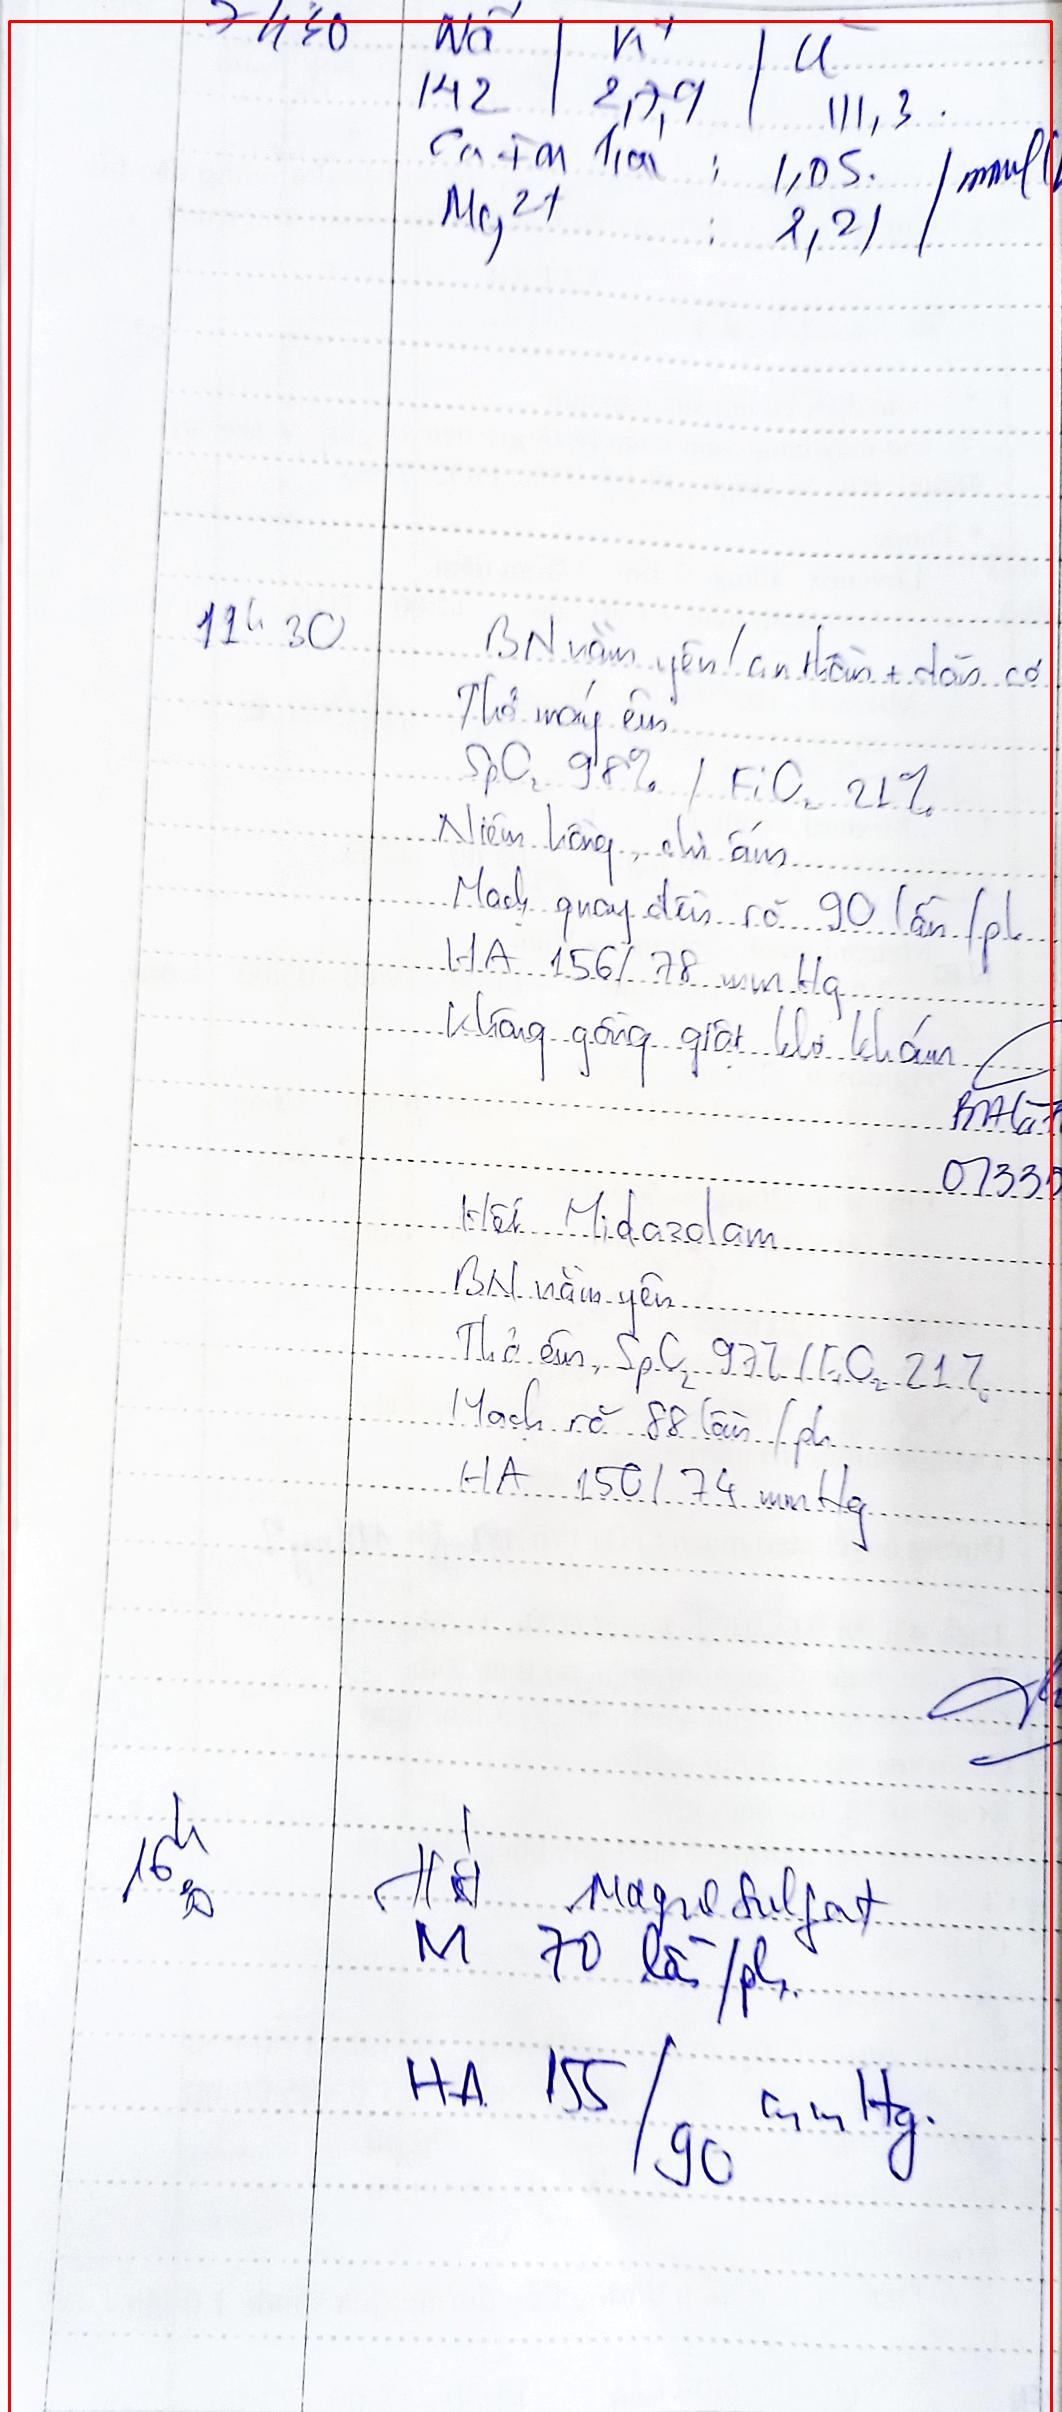 7h30 Na⁺ / K⁺ / Cl⁻
142 / 2,79 / 111,3.
Ca ion hóa : 1,05. / mmol/l
Mg²⁺ : 2,21 /
11h30 BN nằm yên / an thần + dãn cơ
Thở máy êm
SpO₂ 98% / FiO₂ 21%
Niêm hồng, chi ấm
Mạch quay đều rõ 90 lần/ph
HA 156/78 mmHg
Không gồng giật khi khám
0733
Hết Midazolam
BN nằm yên
Thở êm, SpO₂ 97% / FiO₂ 21%
Mạch rõ 88 lần/ph
HA 150/74 mmHg
16h30 Hết Magne Sulfat
M 70 lần/ph.
HA 155/90 mmHg.